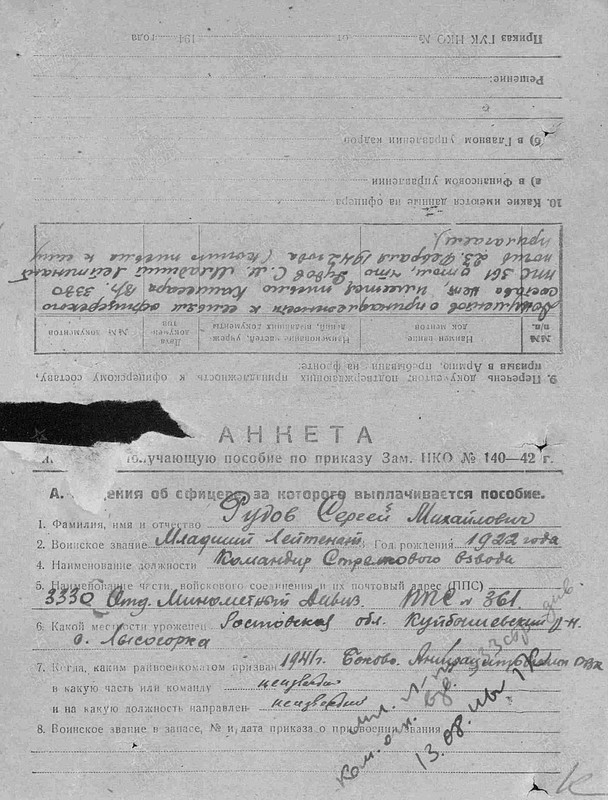 АНКЕТА
лучающую пособие по приказу Зам. НКО № 140—42 г.
А. ения об офицере, за которого выплачивается пособие.
1. Фамилия, имя и отчество Рудов Сергей Михайлович
2. Воинское звание Младший Лейтенант Год рождения 1922 года
4. Наименование должности Командир Стрелкового взвода
5. Наименование части, войскового соединения и их почтовый адрес (ППС)
3330 Отд. Минометный Дивиз. ППС № 361.
6. Какой местности уроженец Ростовская обл. Куйбышевский р-н
с. Лысогорка
7. Когда, каким райвоенкоматом призван 1941 г. Боково. Антрацитовский РВК
в какую часть или команду неизвестно
и на какую должность направлен неизвестно
8. Воинское звание в запасе, № и дата приказа о присвоении звания
13.08.
9. Перечень документов, подтверждающих принадлежность к офицерскому составу,
призыв в Армию, пребывание на фронте:
№№ п/п. Наименование документов Наименование частей, учреждений, выдавших документы Дата документов №№ документов
Документов о принадлежности к семьям офицерского
состава нет, имеется письмо Комиссара в/ч. 3330
ППС 361 о том, что Рудов С. М. Младший Лейтенант
погиб 23 февраля 1942 года (копию письма к сему
прилагаем).
10. Какие имеются данные на офицера
а) в Финансовом управлении
б) в Главном управлении кадров
Решение:
Приказ ГУК НКО № от 194 года